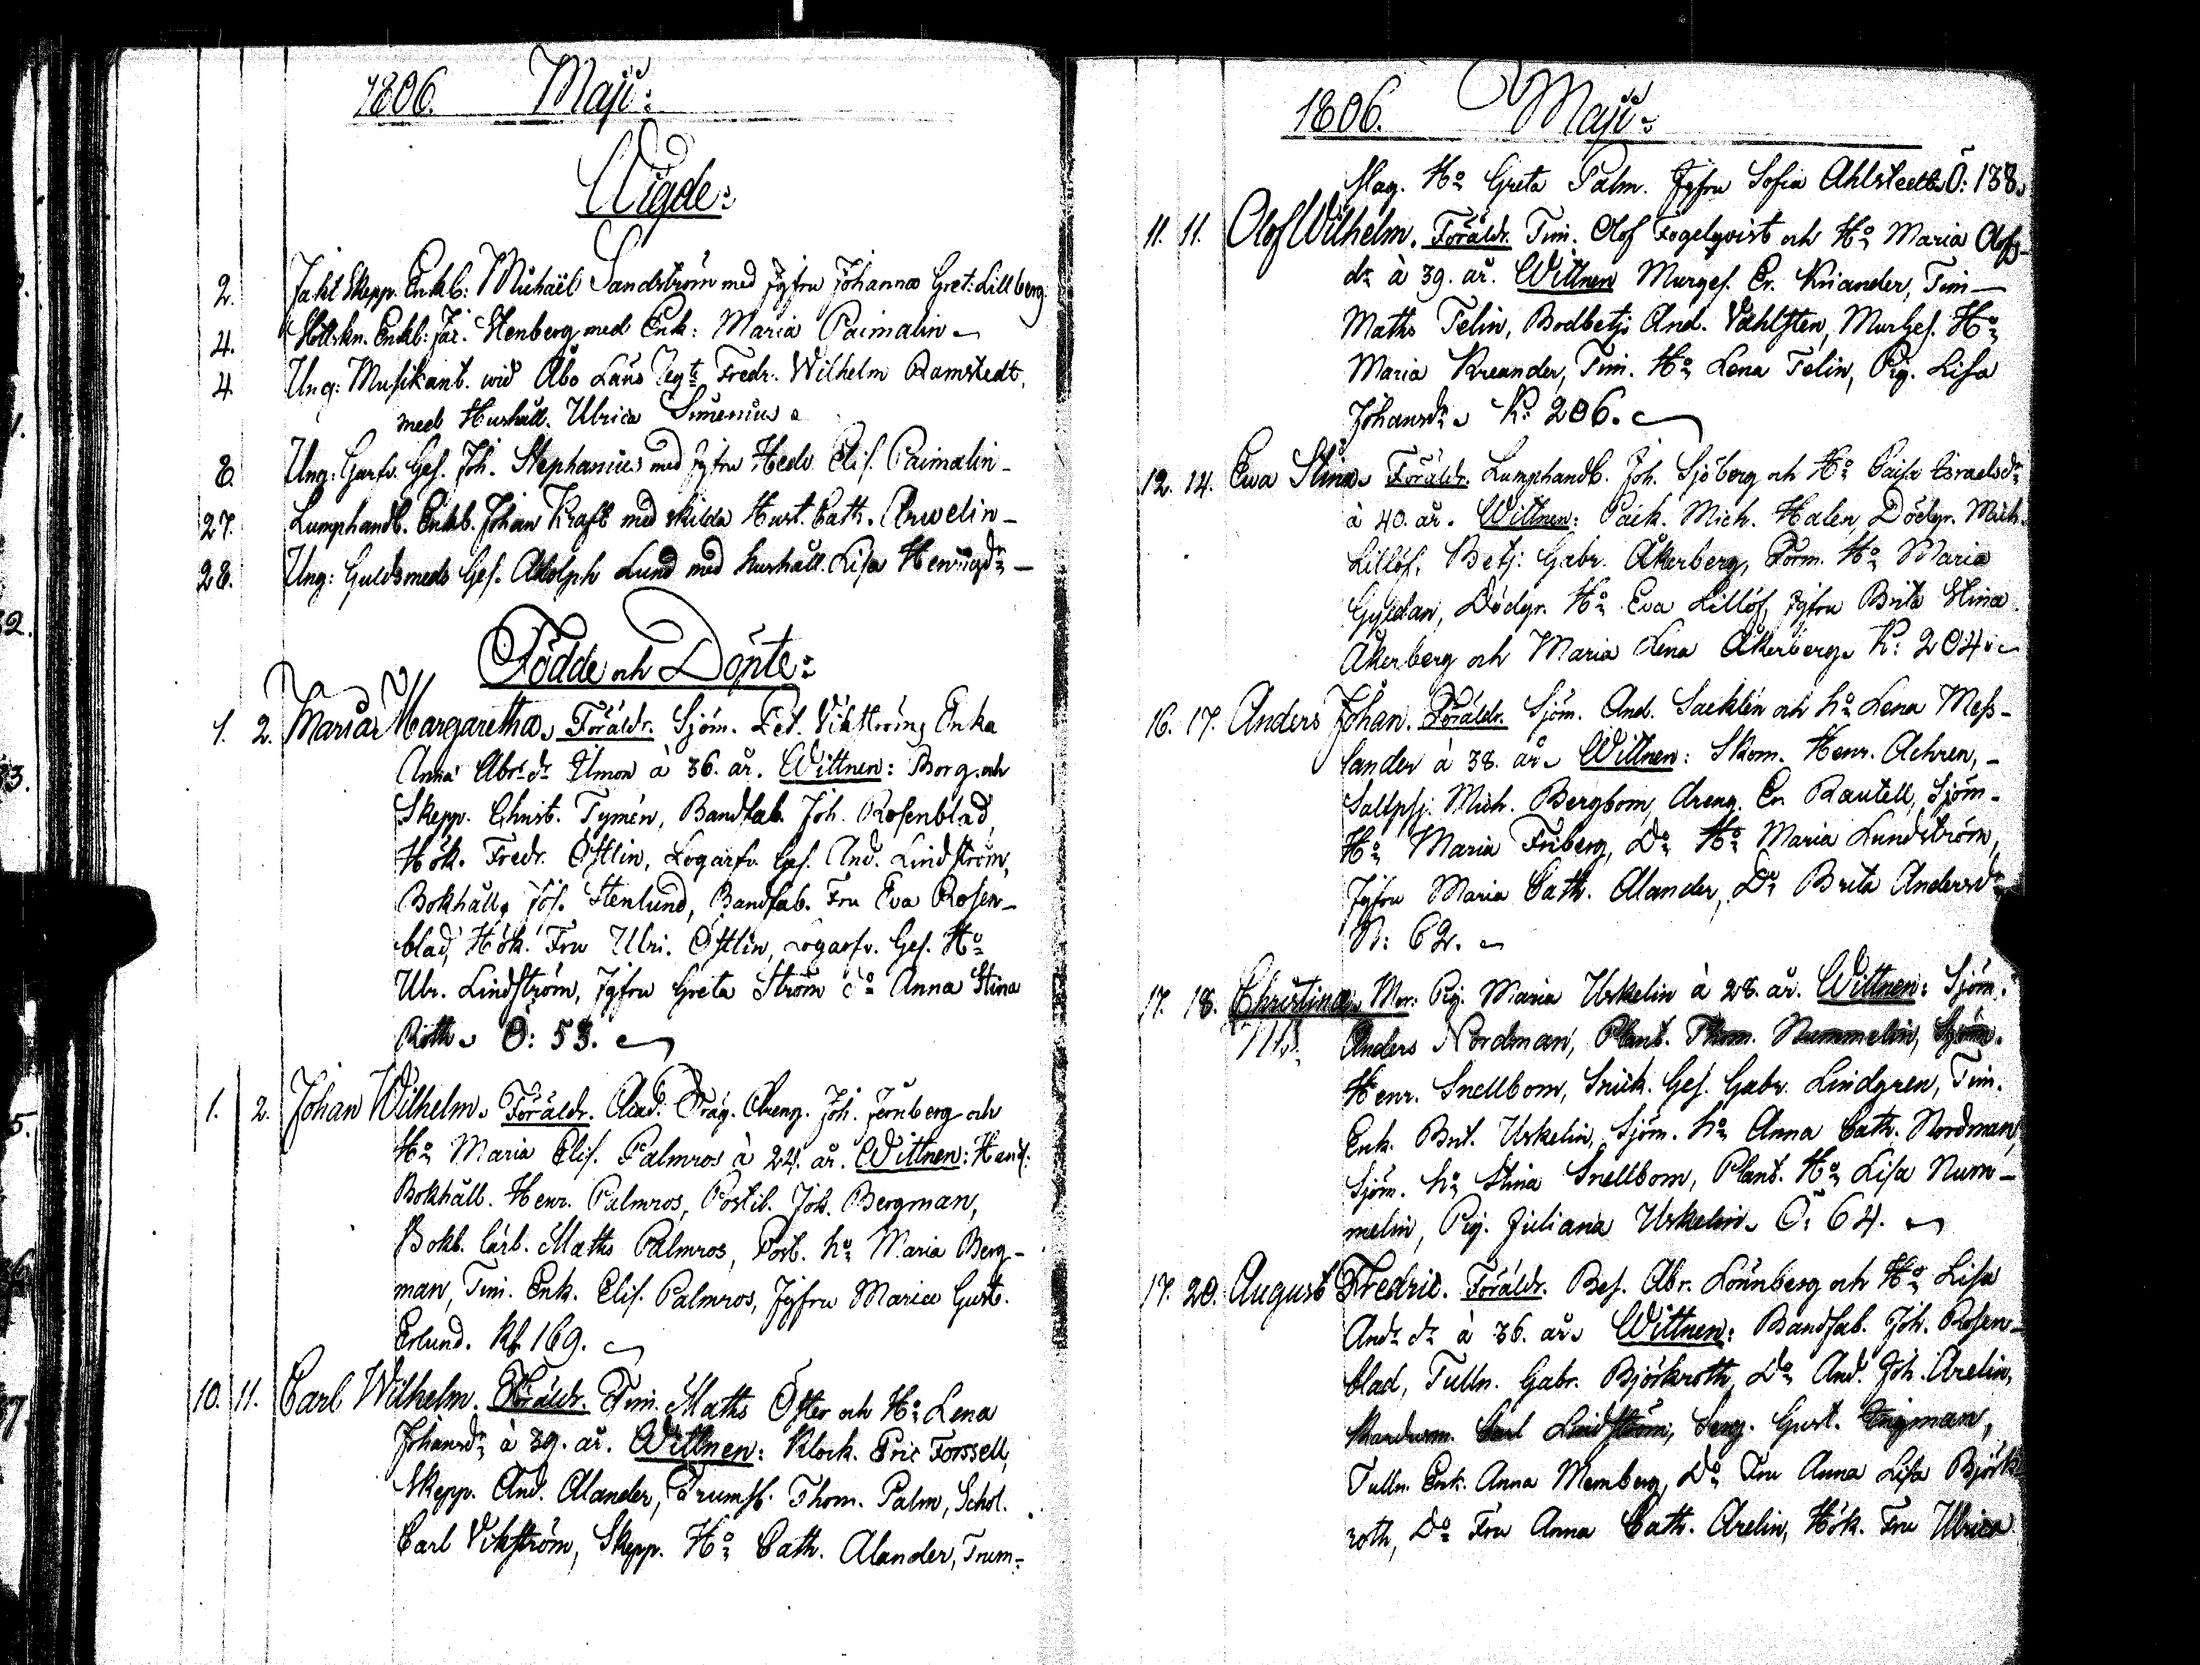 1806. Maji:
Wigde:
2. Jakt Skepp. Enkl: Michaël Sandström med Jgfru Johanna Gret: Lillberg
4. Enkl: Jac. Stenberg med Enk: Maria Paimalin
4. Ung: Musikant. wid Åbo Läns Regte Fredr. Wilhelm Ramstedt,
med Hushåll. Ulrica Simenius
8. Ung: Garfv. Ges. Joh. Stephanius med Jgfru Hedv. Elis. Paimalin
27. Lumphandl. Enkl. Johan Kraft med skilda Hust. Cath. Arwelin
28. Ung: Guldsmeds Ges. Adolph Lund med hushåll. Lisa Henricsdr
Födde och Döpte:
1. 2. Maria Margaretha. Föräldr. Sjöm. Pet. Vikströms Enka
Anna Abrsdr Ilmon à 36. år. Wittnen: Borg. och
Skepp. Christ. Tymén, Bandfab. Joh. Rosenblad,
Hök. Fredr. Östlin, Logarfv. Ges. And. Lindström,
Bokhåll. Jos. Stenlund, Bandfab. Fru Eva Rosen-
blad, Hök. Fru Ulri. Östlin, Logarfv. Ges. Ho
Ulr. Lindström, Jgfru Greta Ström, do Anna Stina
Roth. Ö: 53.
1. 2. Johan Wilhelm. Föräldr. Acad. Träg. Dreng. Joh. Jernberg och
Ho Maria Elis. Palmros à 24. år. Wittnen: Hand.
Bokhåll. Henr. Palmros, Postil. Joh. Bergman,
Bokb. Lärl. Maths Palmros, Post. ho Maria Berg-
man, Tim. Enk. Elis. Palmros, Jgfru Maria Gust.
Erlund. Kl. 169.
10. 11. Carl Wilhelm. Föräldr. Tim. Maths Öster och Ho Lena
Johansdr à 39. år. Wittnen: Klock. Eric Forssell,
Skepp. And. Alander, Trumsl. Thom. Palm, Schol.
Carl Vikström, Skepp. Ho Cath. Alander, Trum-
1806. Maji:
slag. Ho Greta Palm. Jgfru Sofia Ahlstedt. Ö: 138.
11. 11. Olof Wilhelm. Föräldr. Tim. Olof Fogelqvist och Ho Maria Olofs-
dr à 39. år. Wittnen Murges. Er. Kriander, Tim
Maths Telin, Bodbetj. And. Vahlsten, MurGes. Ho
Maria Kreander, Tim. Ho Lena Telin, Pig. Lisa
Johansdr. K: 206.
12. 14. Eva Stina. Föräldr. Lumphandl. Joh. Sjöberg och Ho Caisa Israelsdr
à 40. år. Wittnen: Mich. Halen, Dödgr. Mich.
Lillöf, Betj. Gabr. Åkerberg, Ho Maria
Gyldan, Dödgr. Ho Eva Lillöf, Jgfru Brita Stina
Åkerberg och Maria Lena Åkerberg. K: 204.
16. 17. Anders Johan. Föräldr. Sjöm. And. Sacklén och ho Lena Mess-
lander à 38. år. Wittnen: Skom. Henr. Achren,
Saltpsj. Mich. Bergbom, dreng. Er. Rautell, Sjöm-
Ho Maria Friberg, Do Ho Maria Lundström,
Jgfru Maria Cath. Alander, Do Brita Andersdr
N: 62.
17. 18. Christina. Mor: Pig. Maria Urkelin à 28. år. Wittnen: Sjöm.
Anders Nordman, Plant. Thom. Nummelin, Sjöm.
Henr. Snellbom, Snick. Ges. Gabr. Lindgren, Tim.
Enk. Brit. Urkelin, Sjöm. ho Anna Cath. Nordman,
Sjöm. ho Stina Snellbom, Plant. Ho Lisa Num-
melin, Pig. Juliana Urkelin. Ö: 64.
17. 20. August Fredric. Föräldr. Bes. Abr. Lönnberg och Ho Lisa
Andr dr à 36. år. Wittnen: Bandfab. Joh. Rosen-
blad, Tulln. Gabr. Björkroth, Do And. Joh. Arelin,
Carl Lindström, Serg. Gust. Engman,
Tulln. Enk. Anna Memberg, Do Fru Anna Lisa Björk-
roth, Do Fru Anna Cath. Arelin, Hök. Fru Ulrica